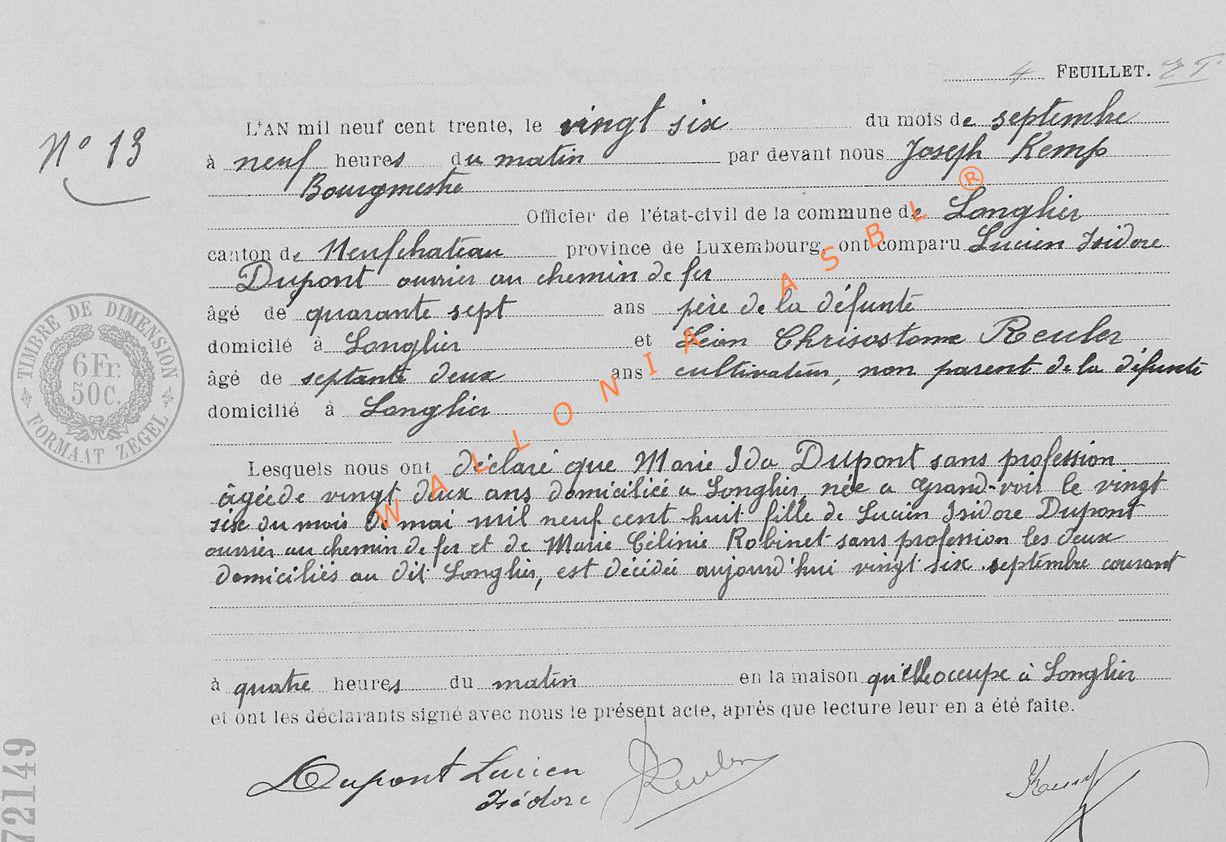 4 FEUILLET.
N° 13
L'AN mil neuf cent trente, le vingt six du mois de septembre
à neuf heures du matin par devant nous Joseph Kemp
Bourgmestre
Officier de l'état-civil de la commune de Longlier
canton de Neufchateau province de Luxembourg, ont comparu Lucien Isidore
Dupont ouvrier au chemin de fer
âgé de quarante sept ans père de la défunte
domicilé à Longlier et Léon Chrisostome Reuler
âgé de septante deux ans cultivateur, non parent de la défunte
domicilié à Longlier
Lesquels nous ont déclaré que Marie Ida Dupont sans profession
âgée de vingt deux ans domiciliée à Longlier, née à Grand-voir le vingt
six du mois de mai mil neuf cent huit fille de Lucien Isidore Dupont
ouvrier au chemin de fer et de Marie Célinie Robinet sans profession les deux
domiciliés au dit Longlier, est décédée aujourd'hui vingt six septembre courant
à quatre heures du matin en la maison qu'elle occupe à Longlier
et ont les déclarants signé avec nous le présent acte, après que lecture leur en a été faite.
Dupont Lucien
Isidore
Reuler
Kemp
TIMBRE DE DIMENSION
6 Fr.
50 c.
FORMAAT ZEGEL
72149
WALLONIA ASBL ®